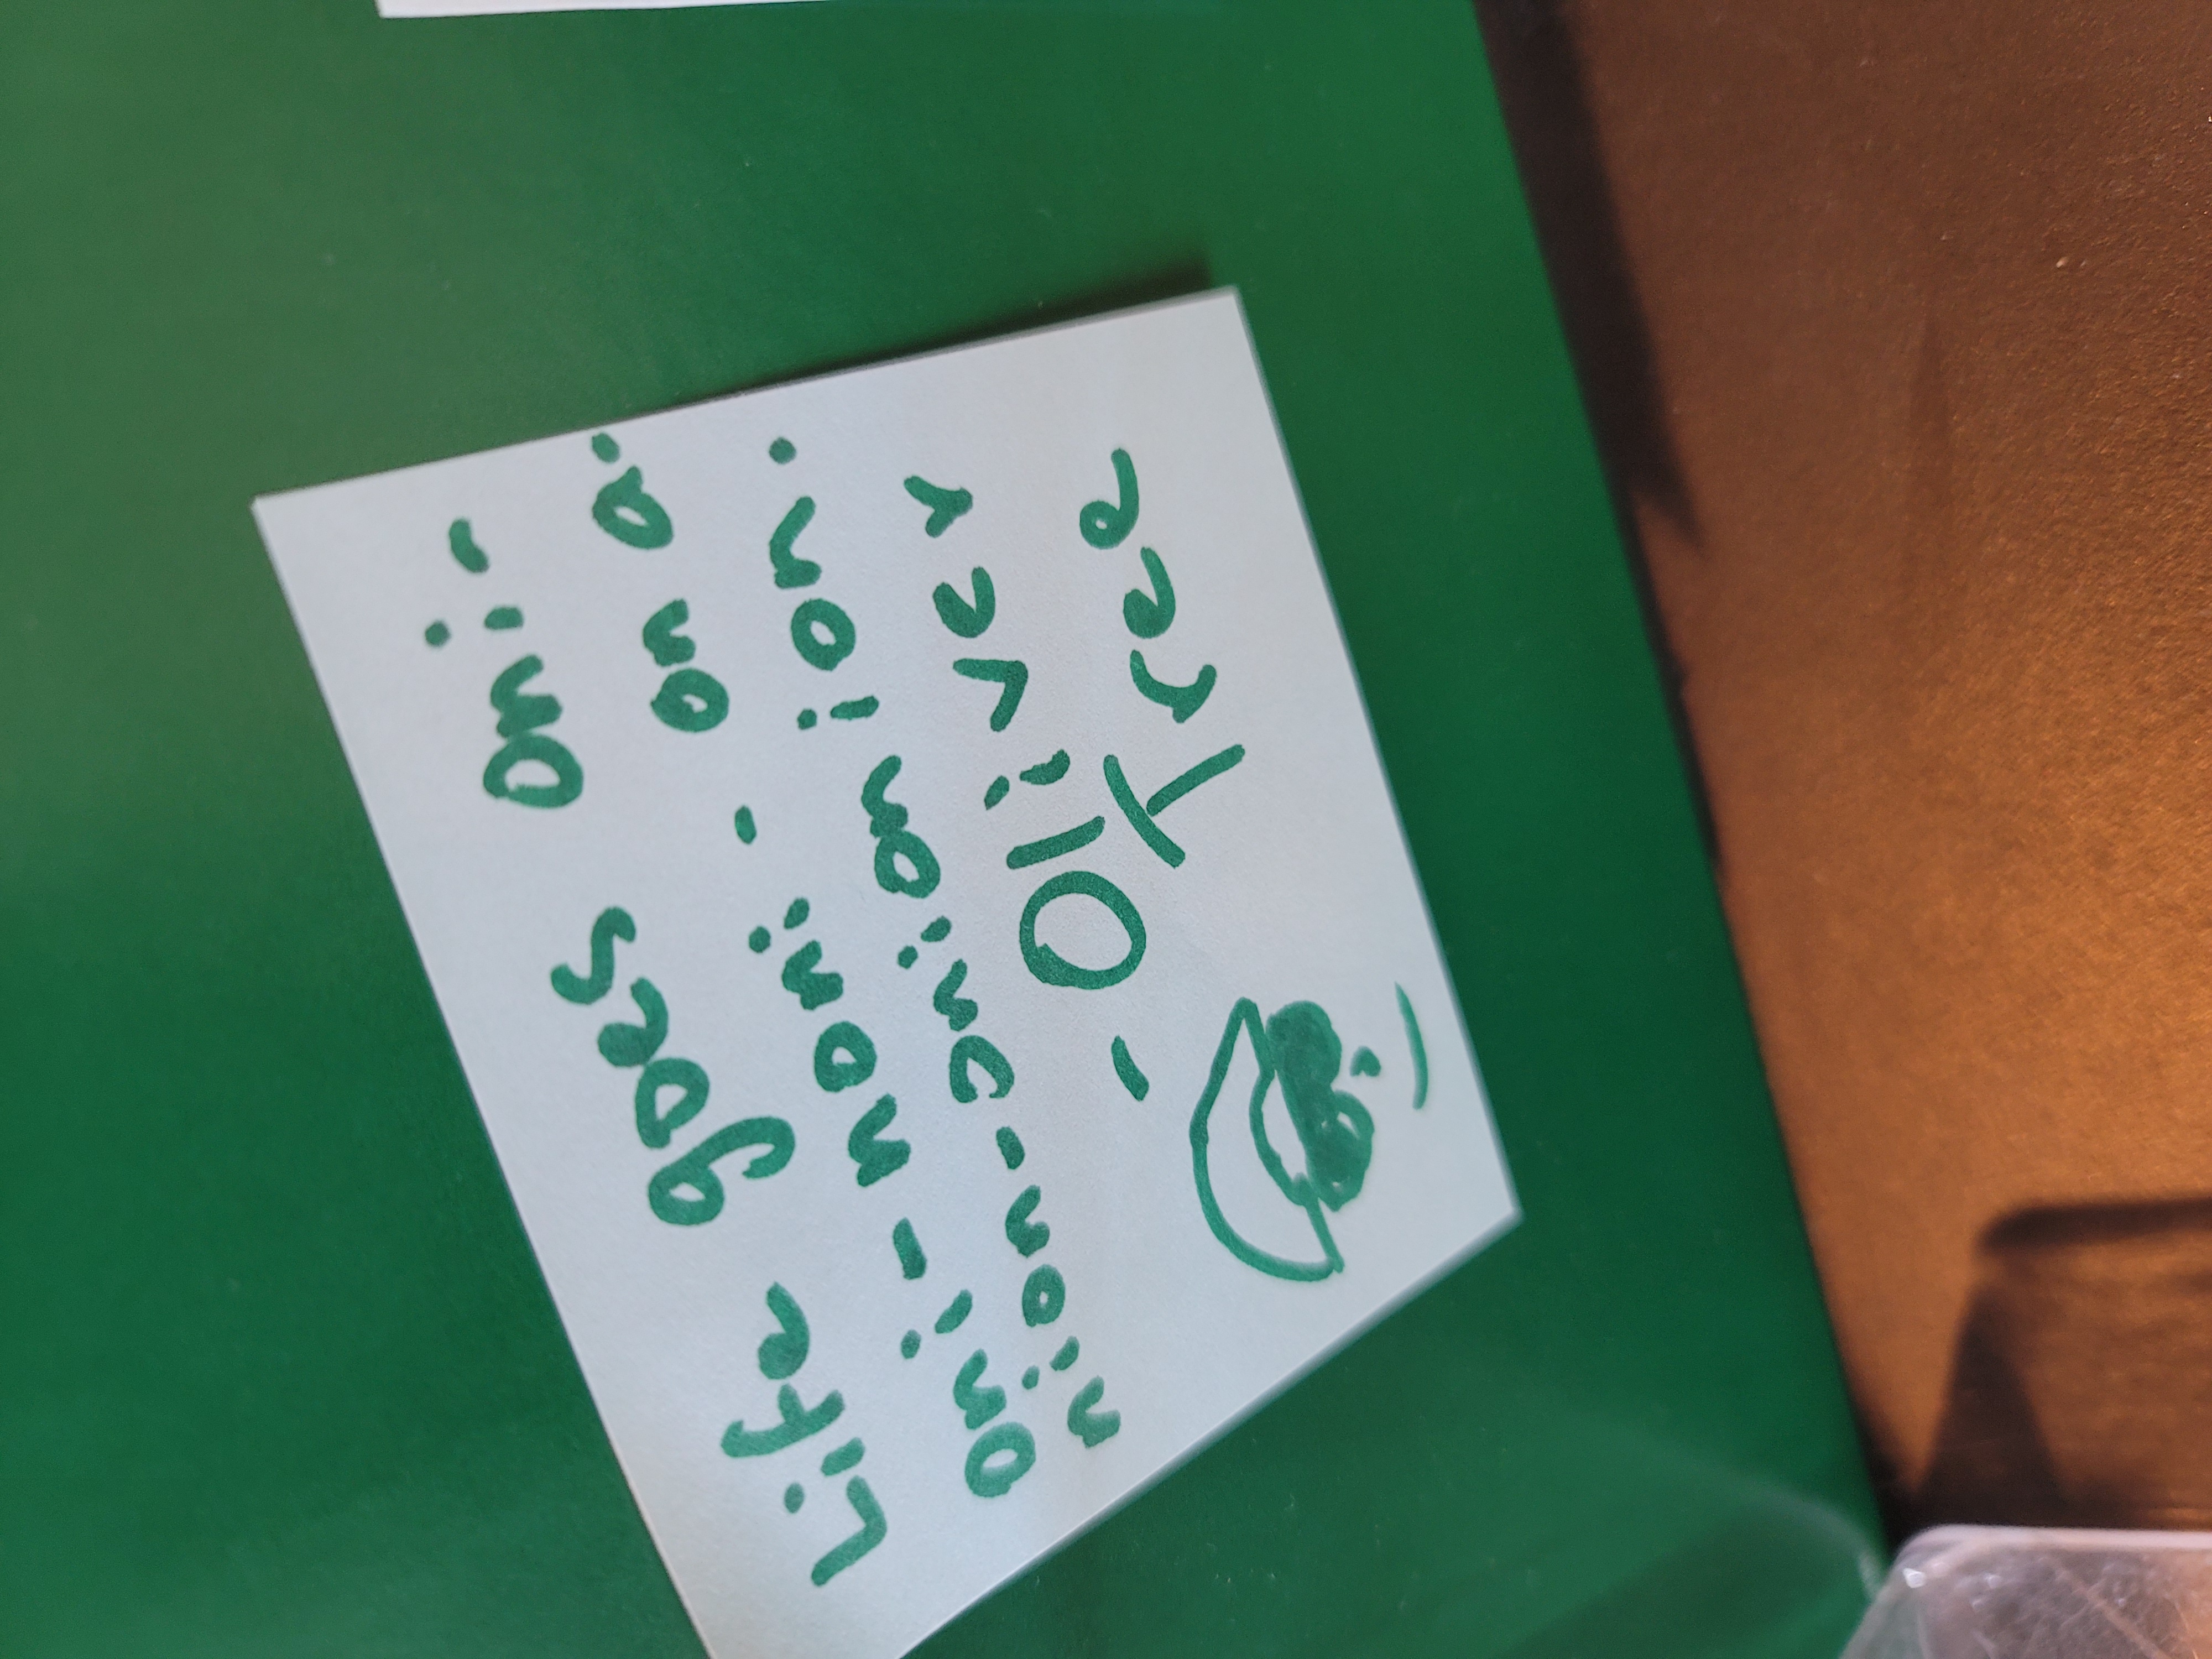 Life goes oni-
oni-noni - on a-
nion-onion ion.
- Oliver
Tree